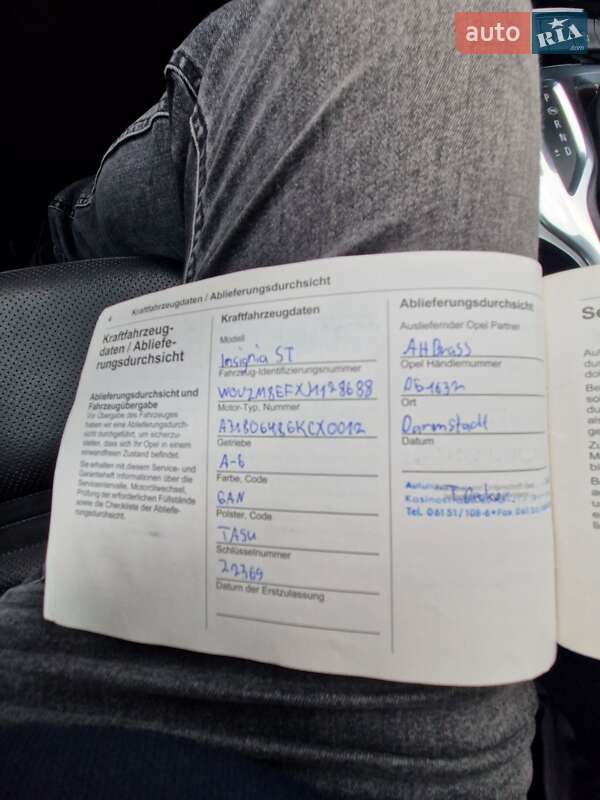 auto RIA.com
P
R
N
D
±
4 Kraftfahrzeugdaten / Ablieferungsdurchsicht
Kraftfahrzeug-
daten / Abliefe-
rungsdurchsicht
Ablieferungsdurchsicht und
Fahrzeugübergabe
Vor Übergabe des Fahrzeuges
haben wir eine Ablieferungsdurch-
sicht durchgeführt, um sicherzu-
stellen, dass sich Ihr Opel in einem
einwandfreien Zustand befindet.
Sie erhalten mit diesem Service- und
Garantieheft Informationen über die
Serviceintervalle, Motorölwechsel,
Prüfung der erforderlichen Füllstände
sowie die Checkliste der Abliefe-
rungsdurchsicht.
Kraftfahrzeugdaten
Modell
Insignia ST
Fahrzeug-Identifizierungsnummer
Motor-Typ, Nummer
Getriebe
A-6
Farbe, Code
GAN
Polster, Code
TASU
Schlüsselnummer
22369
Datum der Erstzulassung
Ablieferungsdurchsicht
Ausliefernder Opel Partner
AH Brass
Opel Händlernummer
Ort
Darmstadt
Datum
Tel. 06151/108-6 • Fax
Se